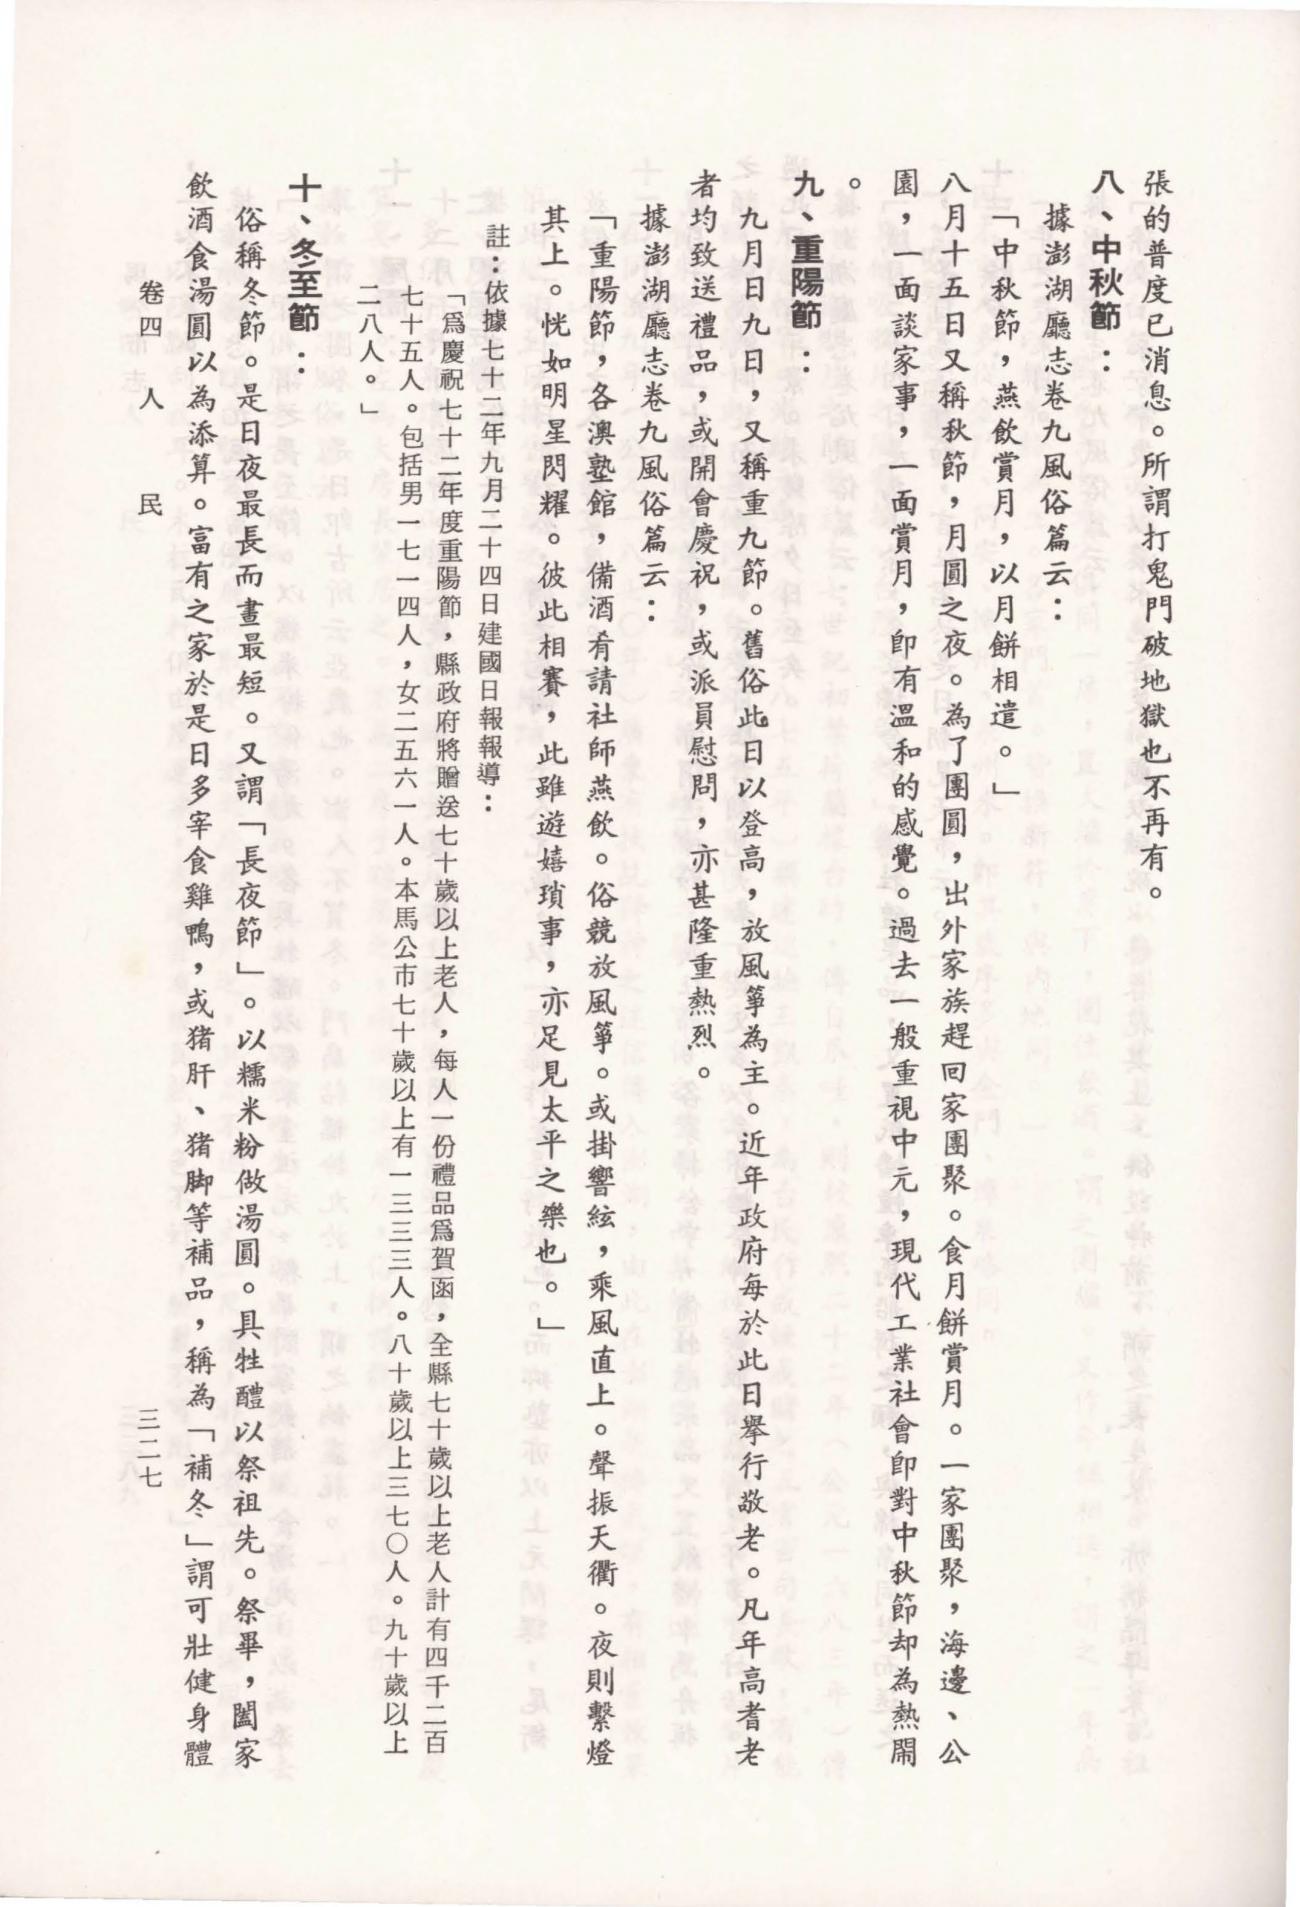 張的普度已消息。所謂打鬼門破地獄也不再有。
八、中秋節：
據澎湖廳志卷九風俗篇云：
「中秋節，燕飲賞月，以月餅相遺。」
八月十五日又稱秋節，月圓之夜。為了團圓，出外家族趕回家團聚。食月餅賞月。一家團聚，海邊、公
園，一面談家事，一面賞月，卽有溫和的感覺。過去一般重視中元，現代工業社會卽對中秋節却為熱閙
。
九、重陽節：
九月日九日，又稱重九節。舊俗此日以登高，放風箏為主。近年政府每於此日舉行敬老。凡年高耆老
者均致送禮品，或開會慶祝，或派員慰問，亦甚隆重熱烈。
據澎湖廳志卷九風俗篇云：
「重陽節，各澳塾館，備酒肴請社師燕飲。俗競放風箏。或掛響絃，乘風直上。聲振天衢。夜則繫燈
其上。恍如明星閃耀。彼此相賽，此雖遊嬉瑣事，亦足見太平之樂也。」
註：依據七十二年九月二十四日建國日報報導：
「爲慶祝七十二年度重陽節，縣政府將贈送七十歲以上老人，每人一份禮品爲賀函，全縣七十歲以上老人計有四千二百
七十五人。包括男一七一四人，女二五六一人。本馬公市七十歲以上有一三三三人。八十歲以上三七〇人。九十歲以上
二八人。」
十、冬至節：
俗稱冬節。是日夜最長而晝最短。又謂「長夜節」。以糯米粉做湯圓。具牲醴以祭祖先。祭畢，闔家
飲酒食湯圓以為添算。富有之家於是日多宰食雞鴨，或猪肝、猪脚等補品，稱為「補冬」謂可壯健身體
卷四　人　民
三二七